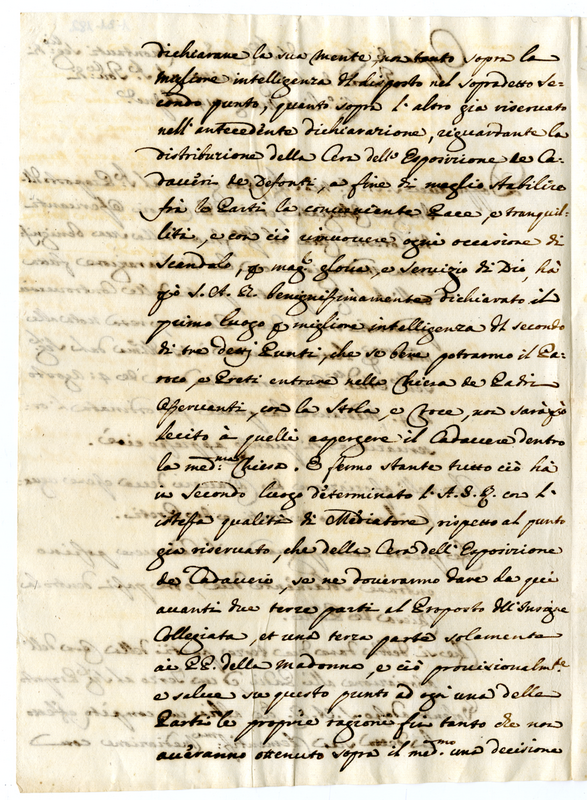 dichiarare la sua mente, non tanto sopra la
migliore intelligenza dl disposto nel sopradetto se-
condo punto, quanto sopra l'altro già riservato
nell'antecedente dichiarazione, riguardante la
distribuzione della Cera dell'Esposizione de Ca-
daveri de Defonti, a fine di meglio stabilire
frà le Parti la conveniente Pace, e tranquil-
lità, e con ciò rimuovere ogni occasione di
scandalo, p magr. gloria, e servizio di Dio, hà
pciò S. A. R. benignissimamente dichiarato il
primo luogo p migliore intelligenza dl secondo
di tre detti Punti, che se bene potranno il Pa-
roco, e Preti entrare nella Chiesa de Padri
Osservanti, con la Stola, e Croce, non sarà pciò
lecito à quelli aspergere il Cadavere dentro
la med.ma Chiesa. E fermo stante tutto ciò hà
in Secondo luogo determinato l'A. S. R. con l'
istessa qualità di Mediatore, rispetto al punto
già riservato, che della Cera dell'Esposizione
de Cadaveri, se ne doveranno dare da qui
avanti due terze parti al Proposto dll'Insigne
Collegiata, et una terza parte solamente
ai PP. della Madonna, e ciò provisionalmte
e salve su questo punto ad ogni una delle
Parti le proprie ragioni fin tanto che non
averanno ottenuto sopra il med.mo una decisione